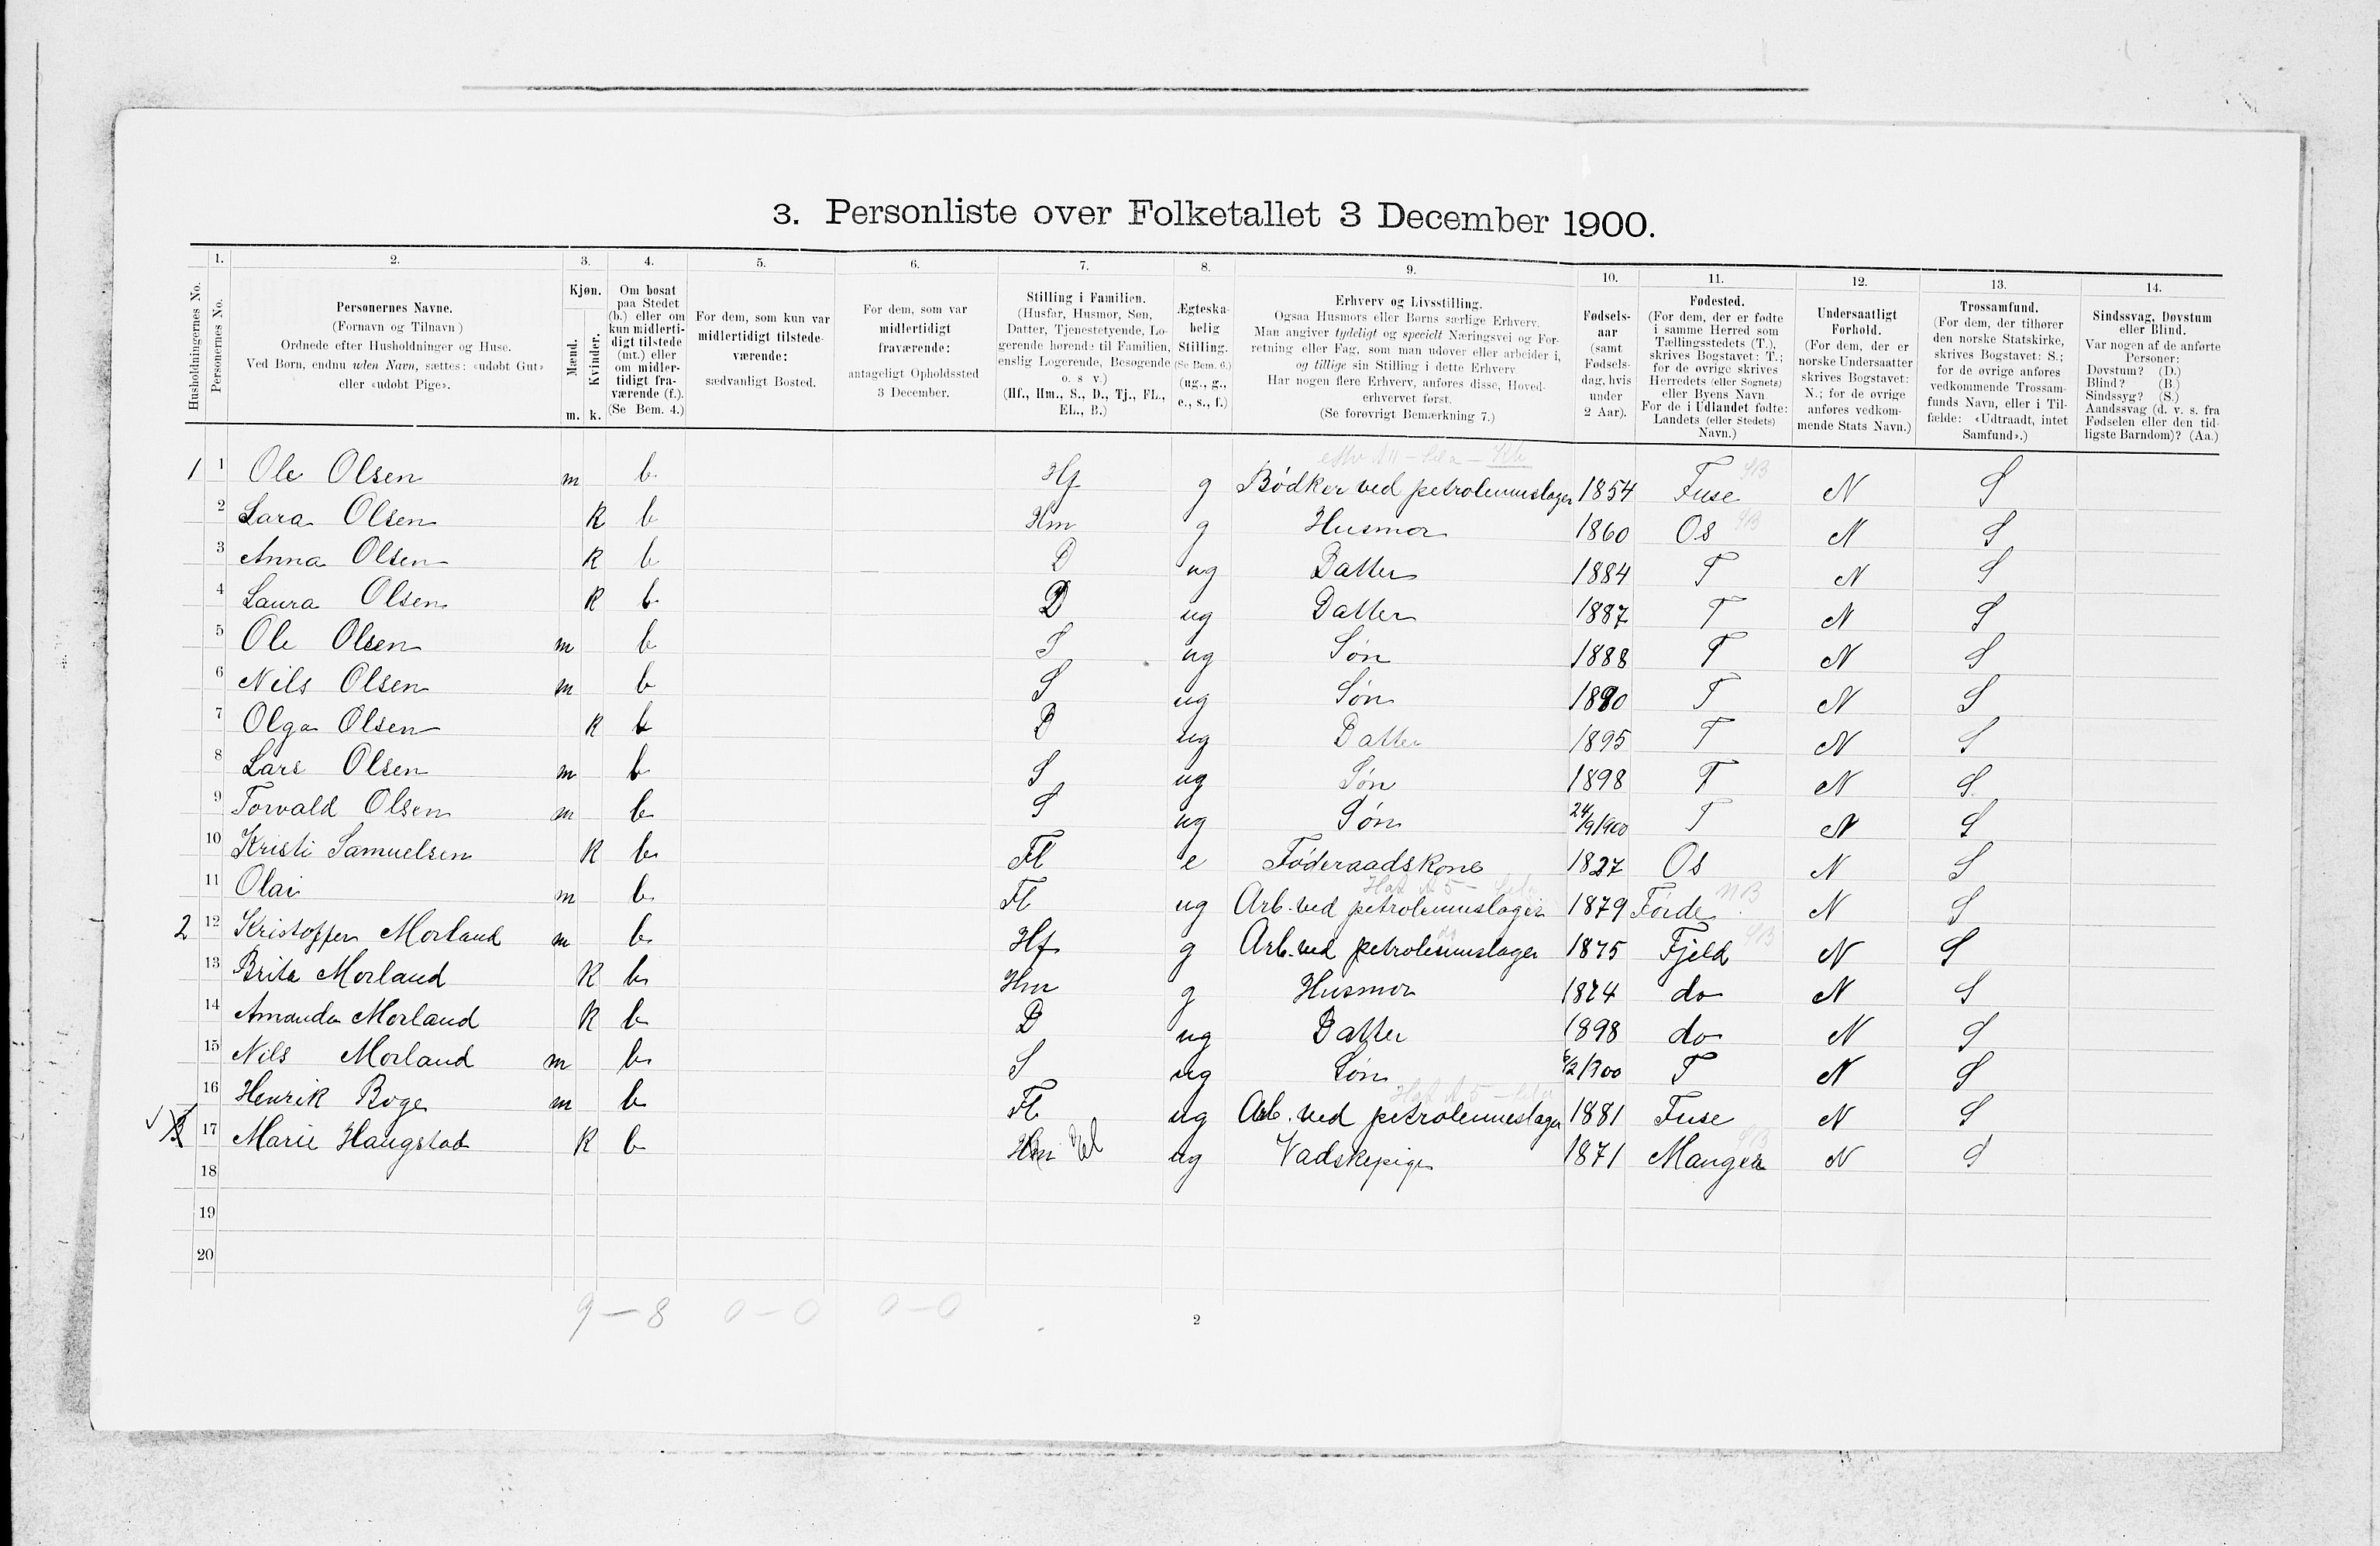 3. Personliste over Folketallet 3 December 1900.
1. 2. 3. 4. 5. 6. 7. 8. 9. 10. 11. 12. 13. 14.
Husholdningernes No.
Personernes No.
Personernes Navne.
(Fornavn og Tilnavn.)
Ordnede efter Husholdninger og Huse.
Ved Børn, endnu uden Navn, sættes: «udøbt Gut»
eller «udøbt Pige».
Kjøn.
Mænd.
Kvinder.
m. k.
Om bosat
paa Stedet
(b.) eller om
kun midlerti-
digt tilstede
(mt.) eller
om midler-
tidigt fra-
værende (f.).
(Se Bem. 4.)
For dem, som kun var
midlertidigt tilstede-
værende:
sædvanligt Bosted.
For dem, som var
midlertidigt
fraværende:
antageligt Opholdssted
3 December.
Stilling i Familien.
(Husfar, Husmor, Søn,
Datter, Tjenestetyende, Lo-
gerende hørende til Familien,
enslig Logerende, Besøgende
o. s v.)
(Hf., Hm., S., D., Tj., FL.,
EL., B.)
Ægteska-
belig
Stilling.
(Se Bem. 6.)
(ug., g.,
e., s., f.)
Erhverv og Livsstilling.
Ogsaa Husmors eller Børns særlige Erhverv.
Man angiver tydeligt og specielt Næringsvei og For-
retning eller Fag, som man udøver eller arbeider i,
og tillige sin Stilling i dette Erhverv
Har nogen flere Erhverv, anføres disse, Hoved-
erhvervet først.
(Se forøvrigt Bemærkning 7.)
Fødsels-
aar
(samt
Fødsels-
dag, hvis
under
2 Aar).
Fødested.
(For dem, der er fødte
i samme Herred som
Tællingsstedets (T.),
skrives Bogstavet: T.;
for de øvrige skrives
Herredets (eller Sognets)
eller Byens Navn.
For de i Udlandet fødte:
Landets (eller Stedets)
Navn.)
Undersaatligt
Forhold.
(For dem, der er
norske Undersaatter
skrives Bogstavet:
N.; for de øvrige
anføres vedkom-
mende Stats Navn.)
Trossamfund.
(For dem, der tilhører
den norske Statskirke,
skrives Bogstavet: S.;
for de øvrige anføres
vedkommende Trossam-
funds Navn, eller i Til-
fælde: «Udtraadt, intet
Samfund».)
Sindssvag, Døvstum
eller Blind.
Var nogen af de anførte
Personer:
Døvstum? (D.)
Blind? (B.)
Sindssyg? (S.)
Aandssvag (d. v. s. fra
Fødselen eller den tid-
ligste Barndom)? (Aa.)
1 1 Ole Olsen m b Hf g Bødker ved petroleumslager 1854 Fuse SB N S
2 Lara Olsen K b Hm g Husmor 1860 Os SB N S
3 Anna Olsen K b D ug Datter 1884 T N S
4 Laura Olsen K b D ug Datter 1887 T N S
5 Ole Olsen m b S ug Søn 1888 T N S
6 Nils Olsen m b S ug Søn 1890 T N S
7 Olga Olsen K b D ug Datter 1895 T N S
8 Lars Olsen m b S ug Søn 1898 T N S
9 Torvald Olsen m b S ug Søn 24/9 1900 T N S
10 Kristi Samuelsen K b Fl e Føderaadskone 1827 Os N S
11 Olai m b Fl ug Arb. ved petroleumslager 1879 Førde NB N S
2 12 Kristoffer Morland m b Hf g Arb. ved petroleumslager 1875 Fjeld SB N S
13 Brita Morland K b Hm g Husmor 1874 do N S
14 Amanda Morland K b D ug Datter 1898 do N S
15 Nils Morland m b S ug Søn 6/2 1900 T N S
16 Henrik Boge m b Fl ug Arb. ved petroleumslager 1881 Fuse N S
3 17 Marie Haugstad K b Hm El ug Vadskepige 1871 Manger SB N S
18
19
20
9 — 8 0 — 0 0 — 0
2